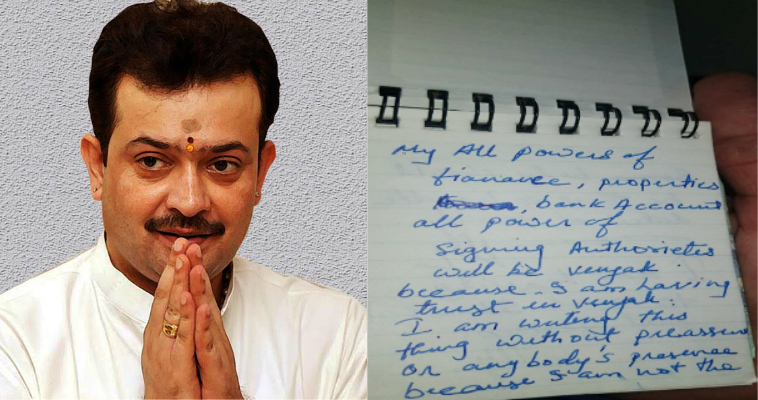 My All powers of
fianance, properties
, bank Account
all power of
signing Authorietes
will be venyak
because. I am having
trust in venyak.
I am writing this
thing without preassur
or anybody's presence
because I am not the